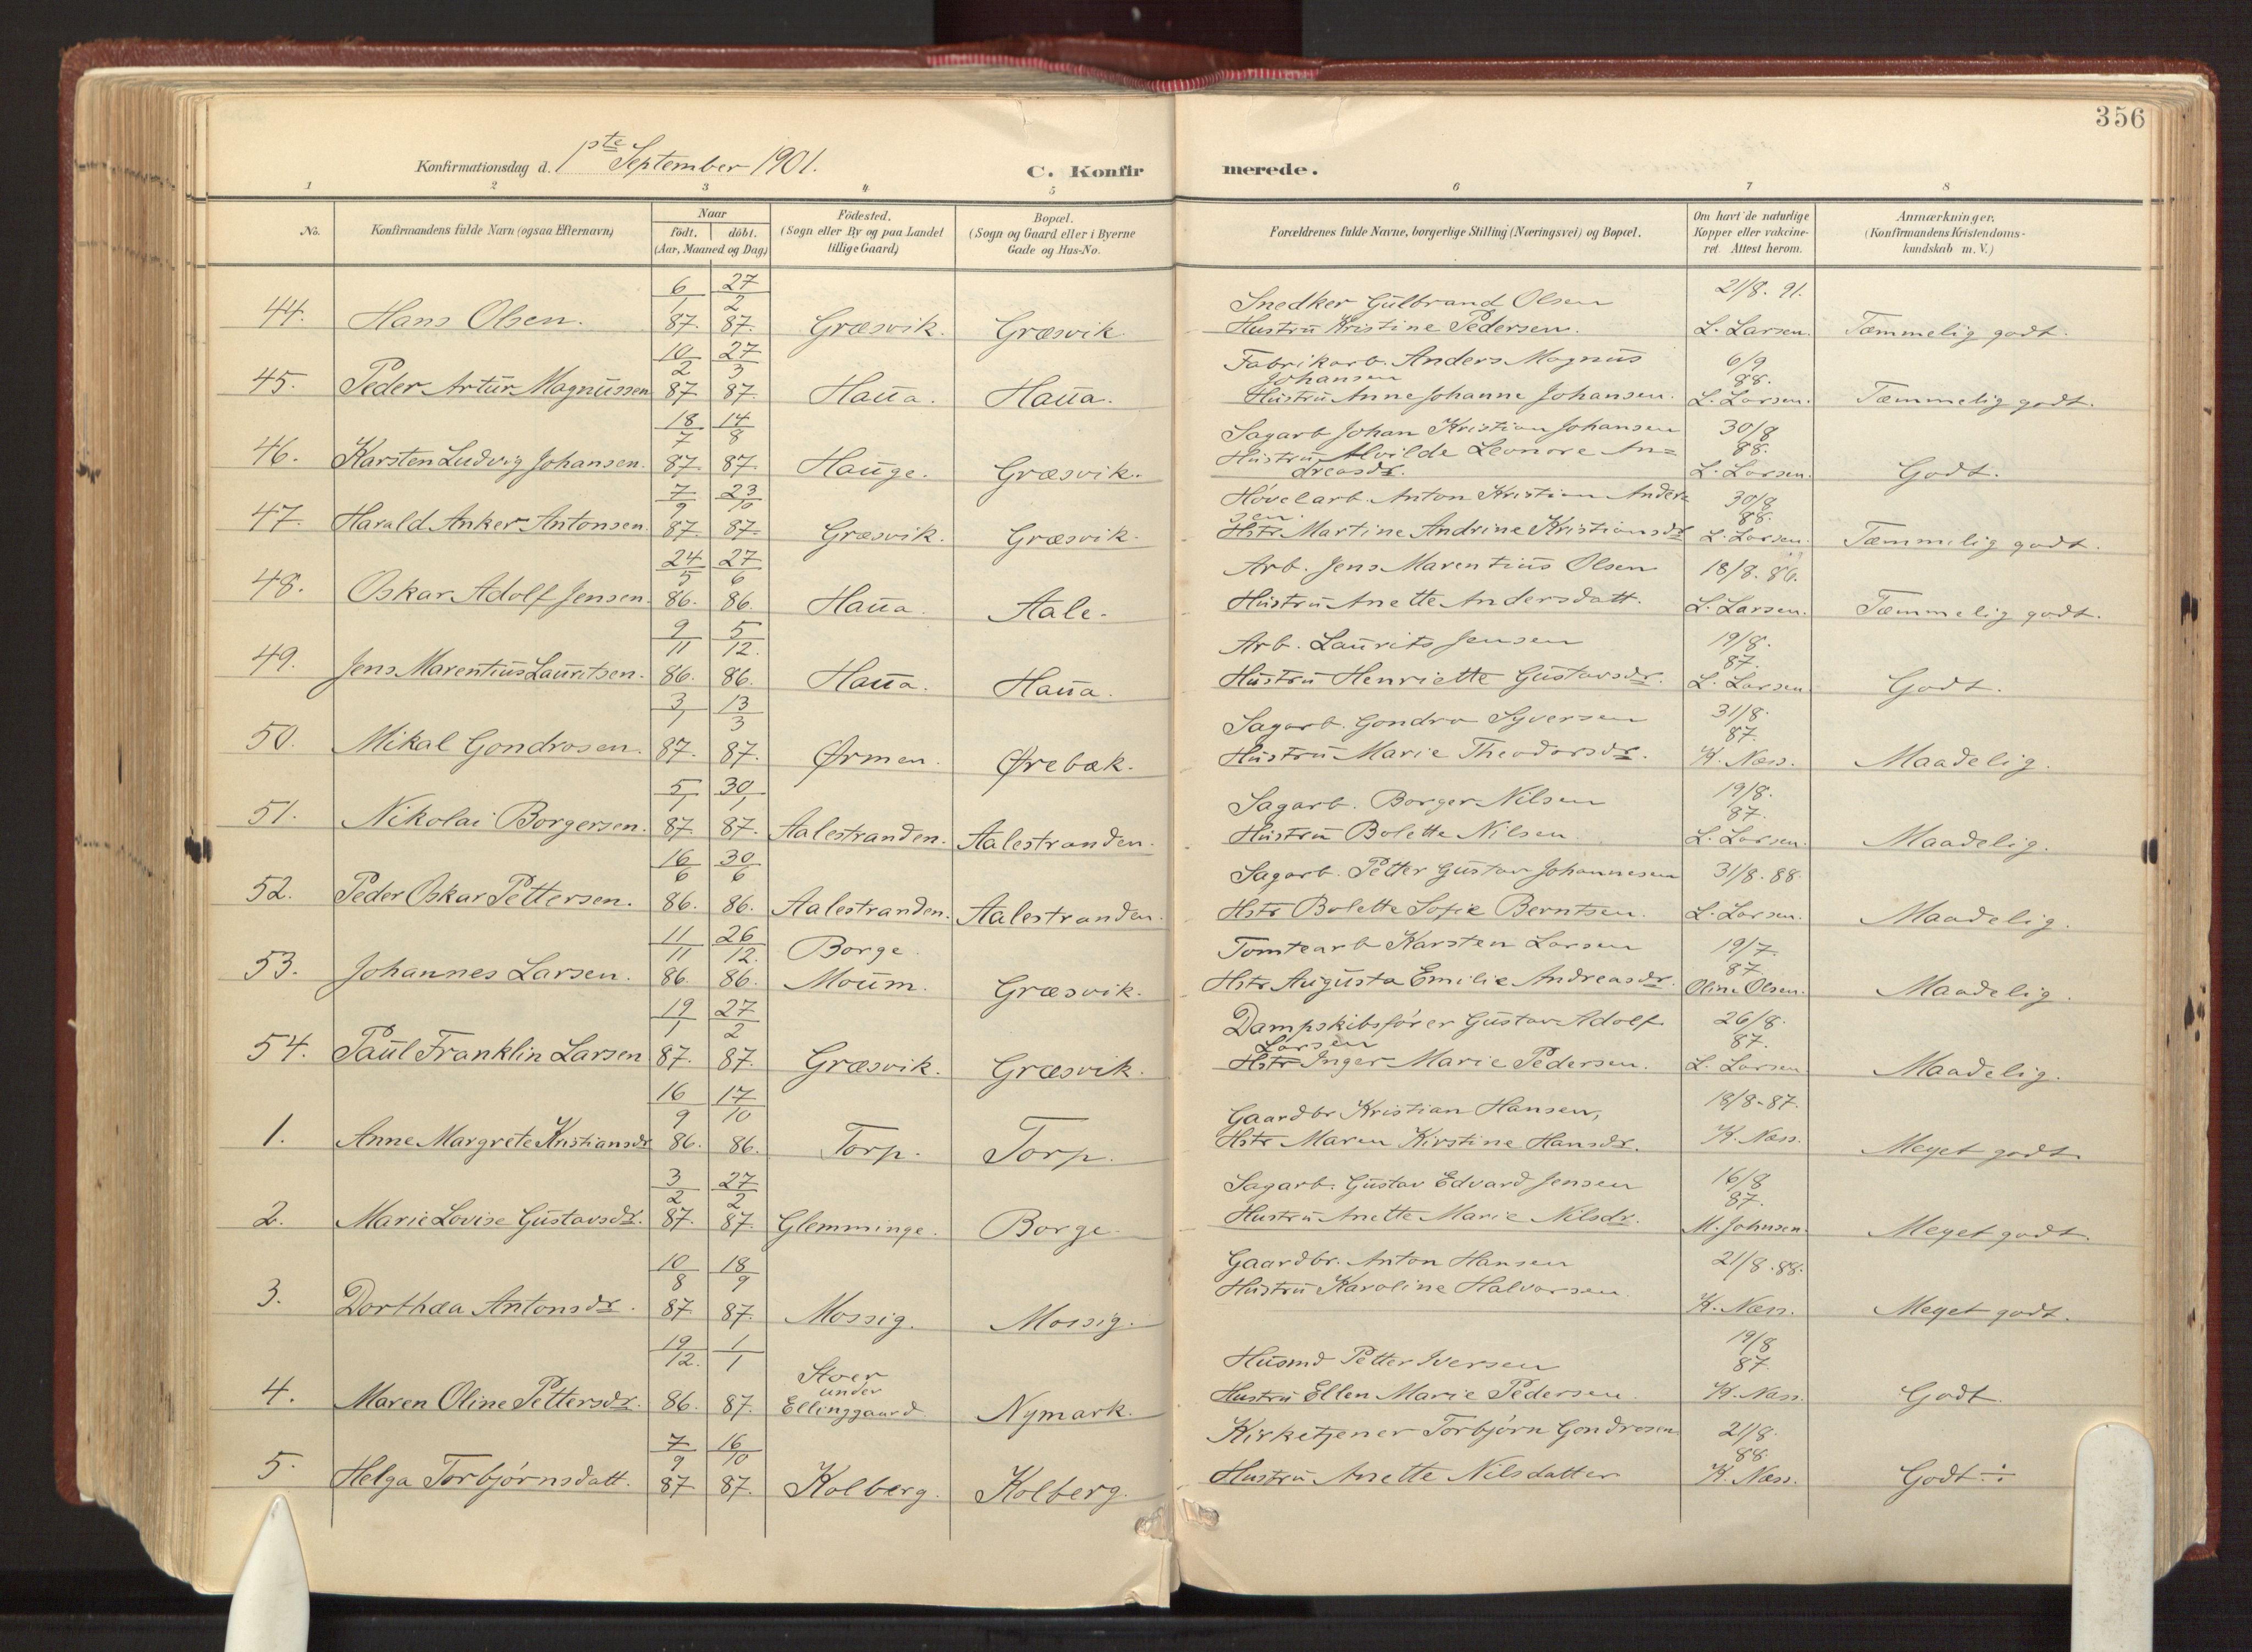 356
Konfirmationsdag d. 1ste September 1901. C. Konfirmerede.
1 2 3 4 5 6 7 8
No. Konfirmandens fulde Navn (ogsaa Efternavn) Naar födt. döbt. (Aar, Maaned og Dag) Födested. (Sogn eller By og paa Landet tillige Gaard) Bopæl. (Sogn og Gaard eller i Byerne Gade og Hus-No. Forældrenes fulde Navne, borgerlige Stilling (Næringsvei) og Bopæl. Om havt de naturlige Kopper eller vakcineret. Attest herom. Anmærkninger. (Konfirmandens Kristendomskundskab m. V.)
44. Hans Olsen. 6/1 87. 27/2 87. Græsvik. Græsvik Snedker Gulbrand Olsen Hustru Kristine Pedersen. 21/8. 91. L. Larsen. Tæmmelig godt.
45. Peder Artur Magnussen 10/2 87 27/3 87. Haua. Haua. Fabrikarb. Anders Magnus Johansen Hustru Anne Johanne Johansen. 6/9 88. L. Larsen. Tæmmelig godt.
46. Karsten Ludvig Johansen. 18/7 87. 14/8 87. Hauge. Græsvik. Sagarb Johan Kristian Johansen Hustru Alvilde Leonore Andreasdr. 30/8 88. L. Larsen. Godt.
47. Harald Anker Antonsen. 7/9 87. 23/10 87. Græsvik. Græsvik. Høvelarb. Anton Kristian Andersen. Hstr Martine Andrine Kristiansdr 30/8 88. L. Larsen. Tæmmelig godt.
48. Oskar Adolf Jensen. 24/5 86. 27/6 86. Haua. Aale. Arb. Jens Marentius Olsen Hustru Anette Andersdatt. 18/8. 86. L. Larsen. Tæmmelig godt.
49. Jens Marentius Lauritsen. 9/11 86. 5/12. 86. Haua. Haua. Arb. Laurits Jensen Hustru Henriette Gustavsdr. 19/8. 87. L. Larsen. Godt.
50. Mikal Gondrosen. 3/1 87. 13/3 87. Ørmen. Ørebæk. Sagarb. Gondro Syversen Hustru Marie Theodorsdr. 31/8. 87. K. Næss. Maadelig.
51. Nikolai Borgersen. 5/1 87. 30/1 87. Aalestranden. Aalestranden. Sagarb. Borger Nilsen Hustru Bolette Nilsen. 19/8. 87. L. Larsen. Maadelig.
52. Peder Oskar Pettersen. 16/6 86. 30/6 86. Aalestranden. Aalestranden. Sagarb. Petter Gustav Johannesen Hstr Bolette Sofie Berntsen. 31/8. 88. L. Larsen. Maadelig.
53. Johannes Larsen. 11/11 86. 26/12. 86. Borge. Moum. Græsvik. Tomtearb Karsten Larsen Hstr Augusta Emilie Andreasdr. 19/7. 87. Oline Olsen. Maadelig.
54. Paul Franklin Larsen 19/1 87. 27/2 87. Græsvik. Græsvik. Dampskibsfører Gustav Adolf Larsen Hstr Inger Marie Pedersen. 26/8. 87. L. Larsen Maadelig.
1. Anne Margrete Kristiansdr 16/9 86. 17/10 86. Torp. Torp. Gaardbr Kristian Hansen, Hstr Maren Kirstine Hansdr. 18/8-87. K. Næss. Meget godt.
2. Marie Lovise Gustavsdr. 3/2 87. 27/2 87. Glemminge. Borge. Sagarb. Gustav Edvard Jensen Hustru Anette Marie Nilsdr. 16/8 87. M. Johnsen. Meget godt.
3. Dorthæa Antonsdr. 10/8 87. 18/9 87. Mossig. Mossig. Gaardbr. Anton Hansen Hustru Karoline Halvorsen. 21/8. 88. K. Næss. Meget godt.
4. Maren Oline Pettersdr. 19/12. 86. 1/1 87. Stoer under Ellinggaard Nymark. Husmd Petter Iversen Hustru Ellen Marie Pedersen. 19/8 87. K. Næss. Godt.
5. Helga Torbjørnsdatt. 7/9 87 16/10 87. Kolberg. Kolberg. Kirketjener Torbjørn Gondrosen Hustru Anette Nilsdatter 21/8. 88. K. Næss. Godt ÷